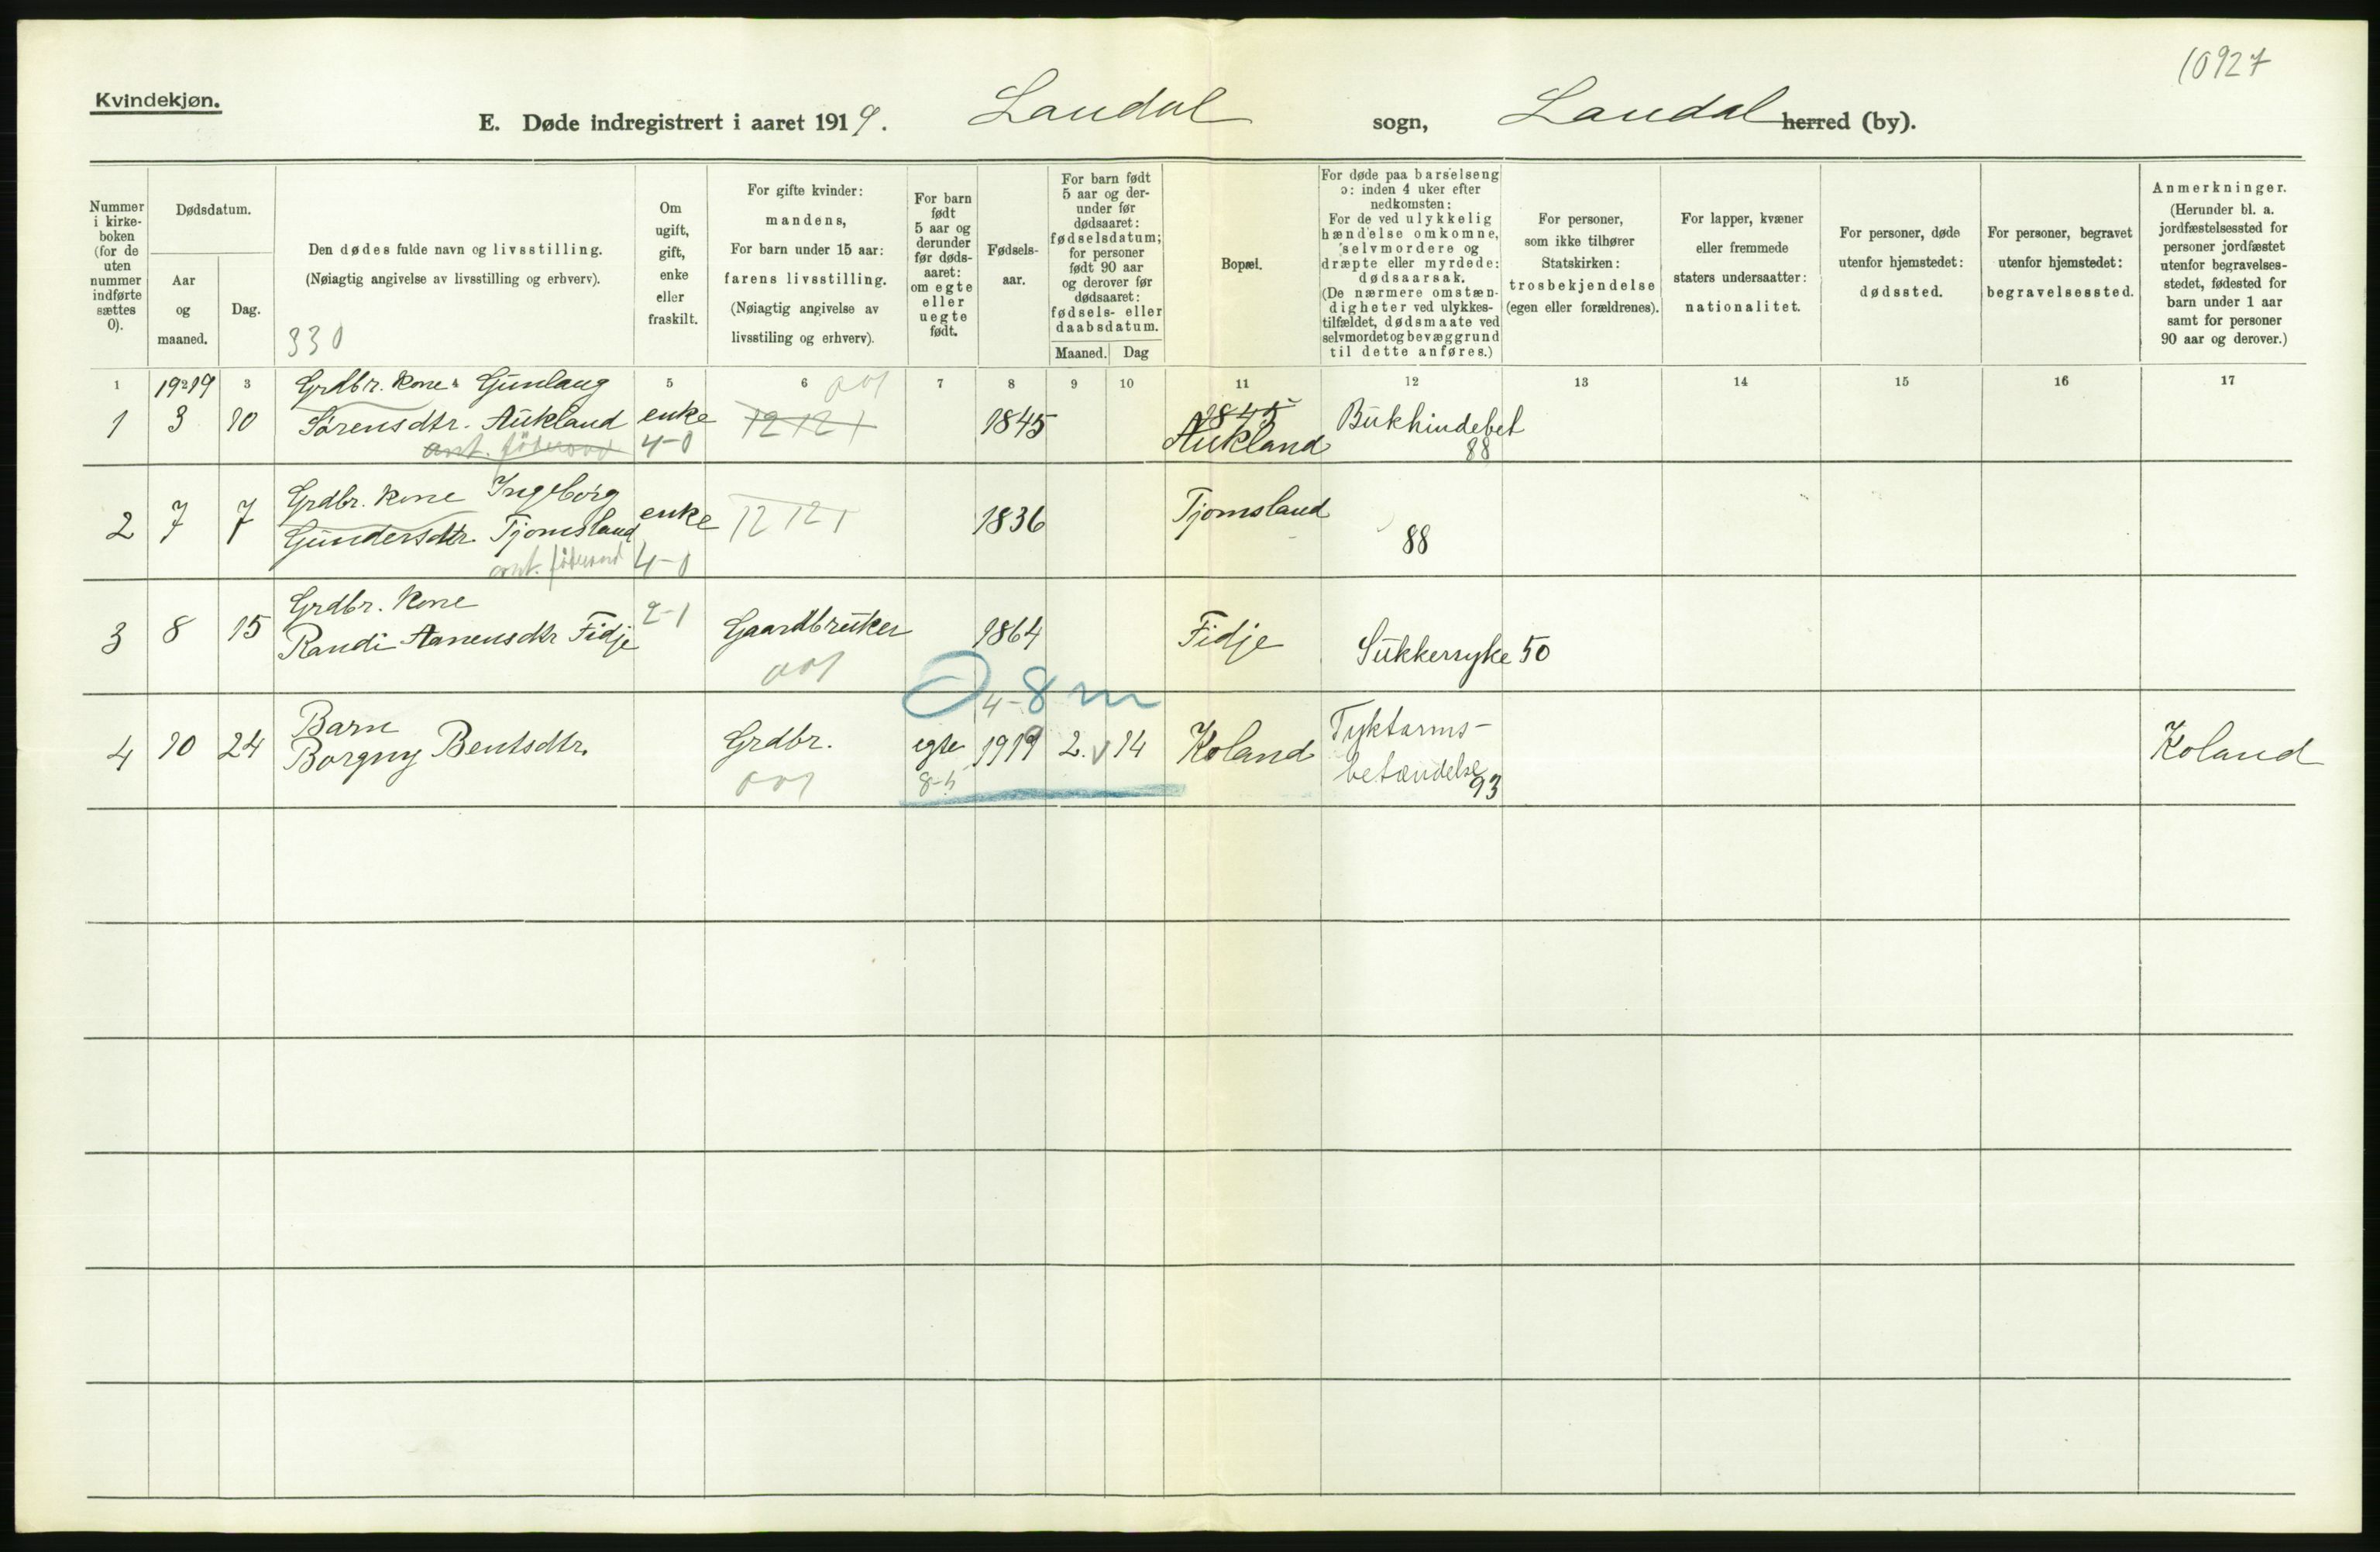 10927
Kvindekjøn.
E. Døde indregistrert i aaret 1919. Laudal sogn, Laudal herred (by).
Nummer
i kirke-
boken
(for de
uten
nummer
indførte
sættes
0).
Dødsdatum.
Aar
og
maaned.
Dag.
Den dødes fulde navn og livsstilling.
(Nøiagtig angivelse av livsstilling og erhverv).
330
Om
ugift,
gift,
enke
eller
fraskilt.
For gifte kvinder:
mandens,
For barn under 15 aar:
farens livsstilling.
(Nøiagtig angivelse av
livsstiling og erhverv).
For barn
født
5 aar og
derunder
før døds-
aaret:
om egte
eller
uegte
født.
Fødsels-
aar.
For barn født
5 aar og der-
under før
dødsaaret:
fødselsdatum;
for personer
født 90 aar
og derover før
dødsaaret:
fødsels- eller
daabsdatum.
Maaned. Dag
Bopæl.
For døde paa barselseng
ɔ: inden 4 uker efter
nedkomsten:
For de ved ulykkelig
hændelse omkomne,
selvmordere og
dræpte eller myrdede:
dødsaarsak.
(De nærmere omstæn-
digheter ved ulykkes-
tilfældet, dødsmaate ved
selvmordet og bevæggrund
til dette anføres.)
For personer,
som ikke tilhører
Statskirken:
trosbekjendelse
(egen eller forældrenes).
For lapper, kvæner
eller fremmede
staters undersaatter:
nationalitet.
For personer, døde
utenfor hjemstedet:
dødssted.
For personer, begravet
utenfor hjemstedet:
begravelsessted.
Anmerkninger.
(Herunder bl. a.
jordfæstelsessted for
personer jordfæstet
utenfor begravelses-
stedet, fødested for
barn under 1 aar
samt for personer
90 aar og derover.)
1 2 3 5 6 7 8 9 10 11 12 13 14 15 16 17
1919 Grdbr. kone Gunlaug 001
1 3 10 Sørensdtr. Aukland enke 12 12 1 1845 1845 Bukhindebet
4-0 Aukland 88
Grdbr. kone Ingeborg
2 7 7 Gundersdtr. Tjomsland enke 12 12 1 1836 Tjomsland
4-0 88
Grdbr. Kone
3 8 15 Randi Aanensdtr Fidje 2-1 Gaardbruker 1864 Fidje Sukkersyke 50
001
4-8 m
Barn
4 10 24 Borgny Bentsdtr. Grdbr. egte 1919 2. 14 Koland Tyktarms- Koland
001 8-5 betændelse 93